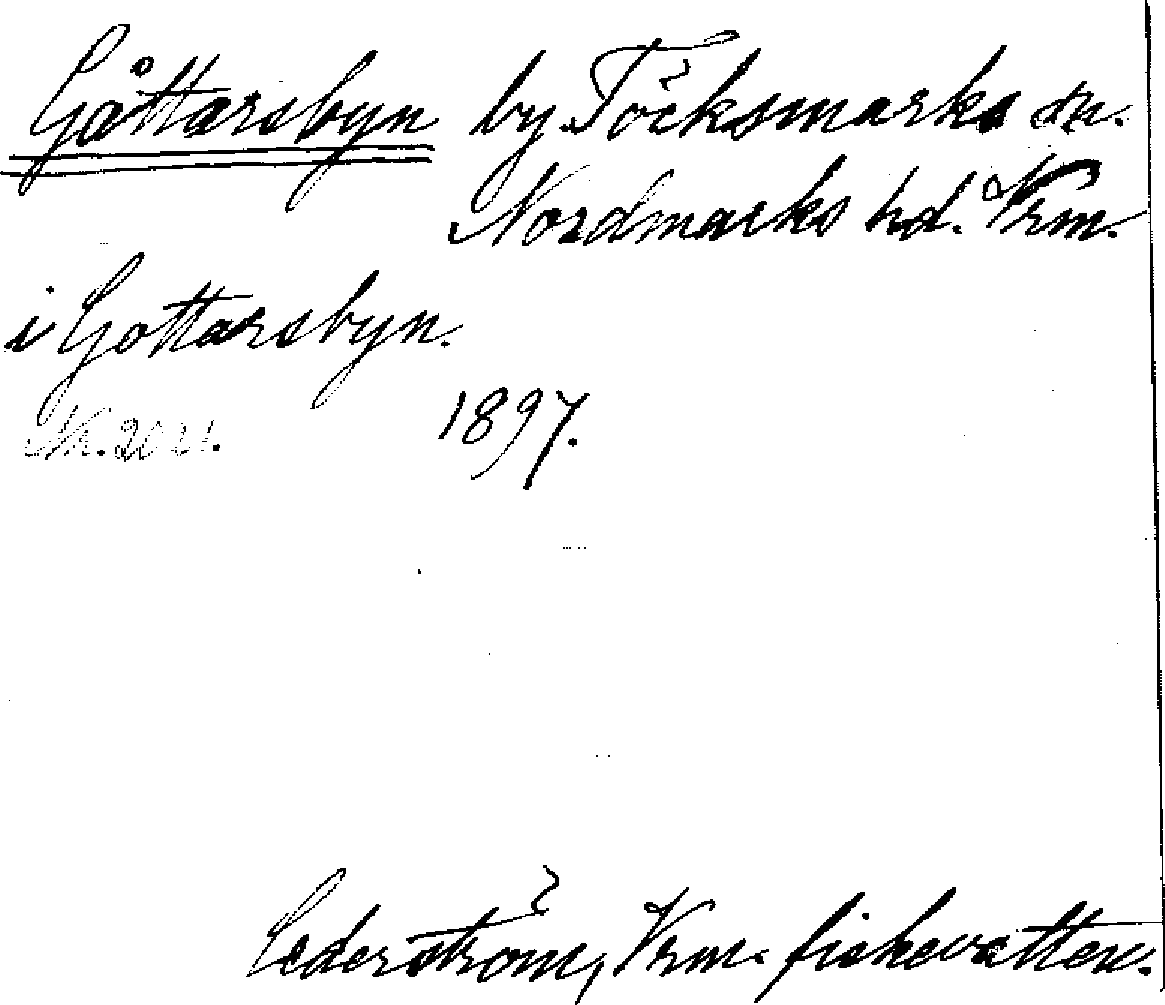 Gåttarsbyn by Töcksmarks sn.
Nordmarks hd. Vrm.
i Gottarsbyn.
1897.
Cederström, Vrm. fiskevatten.